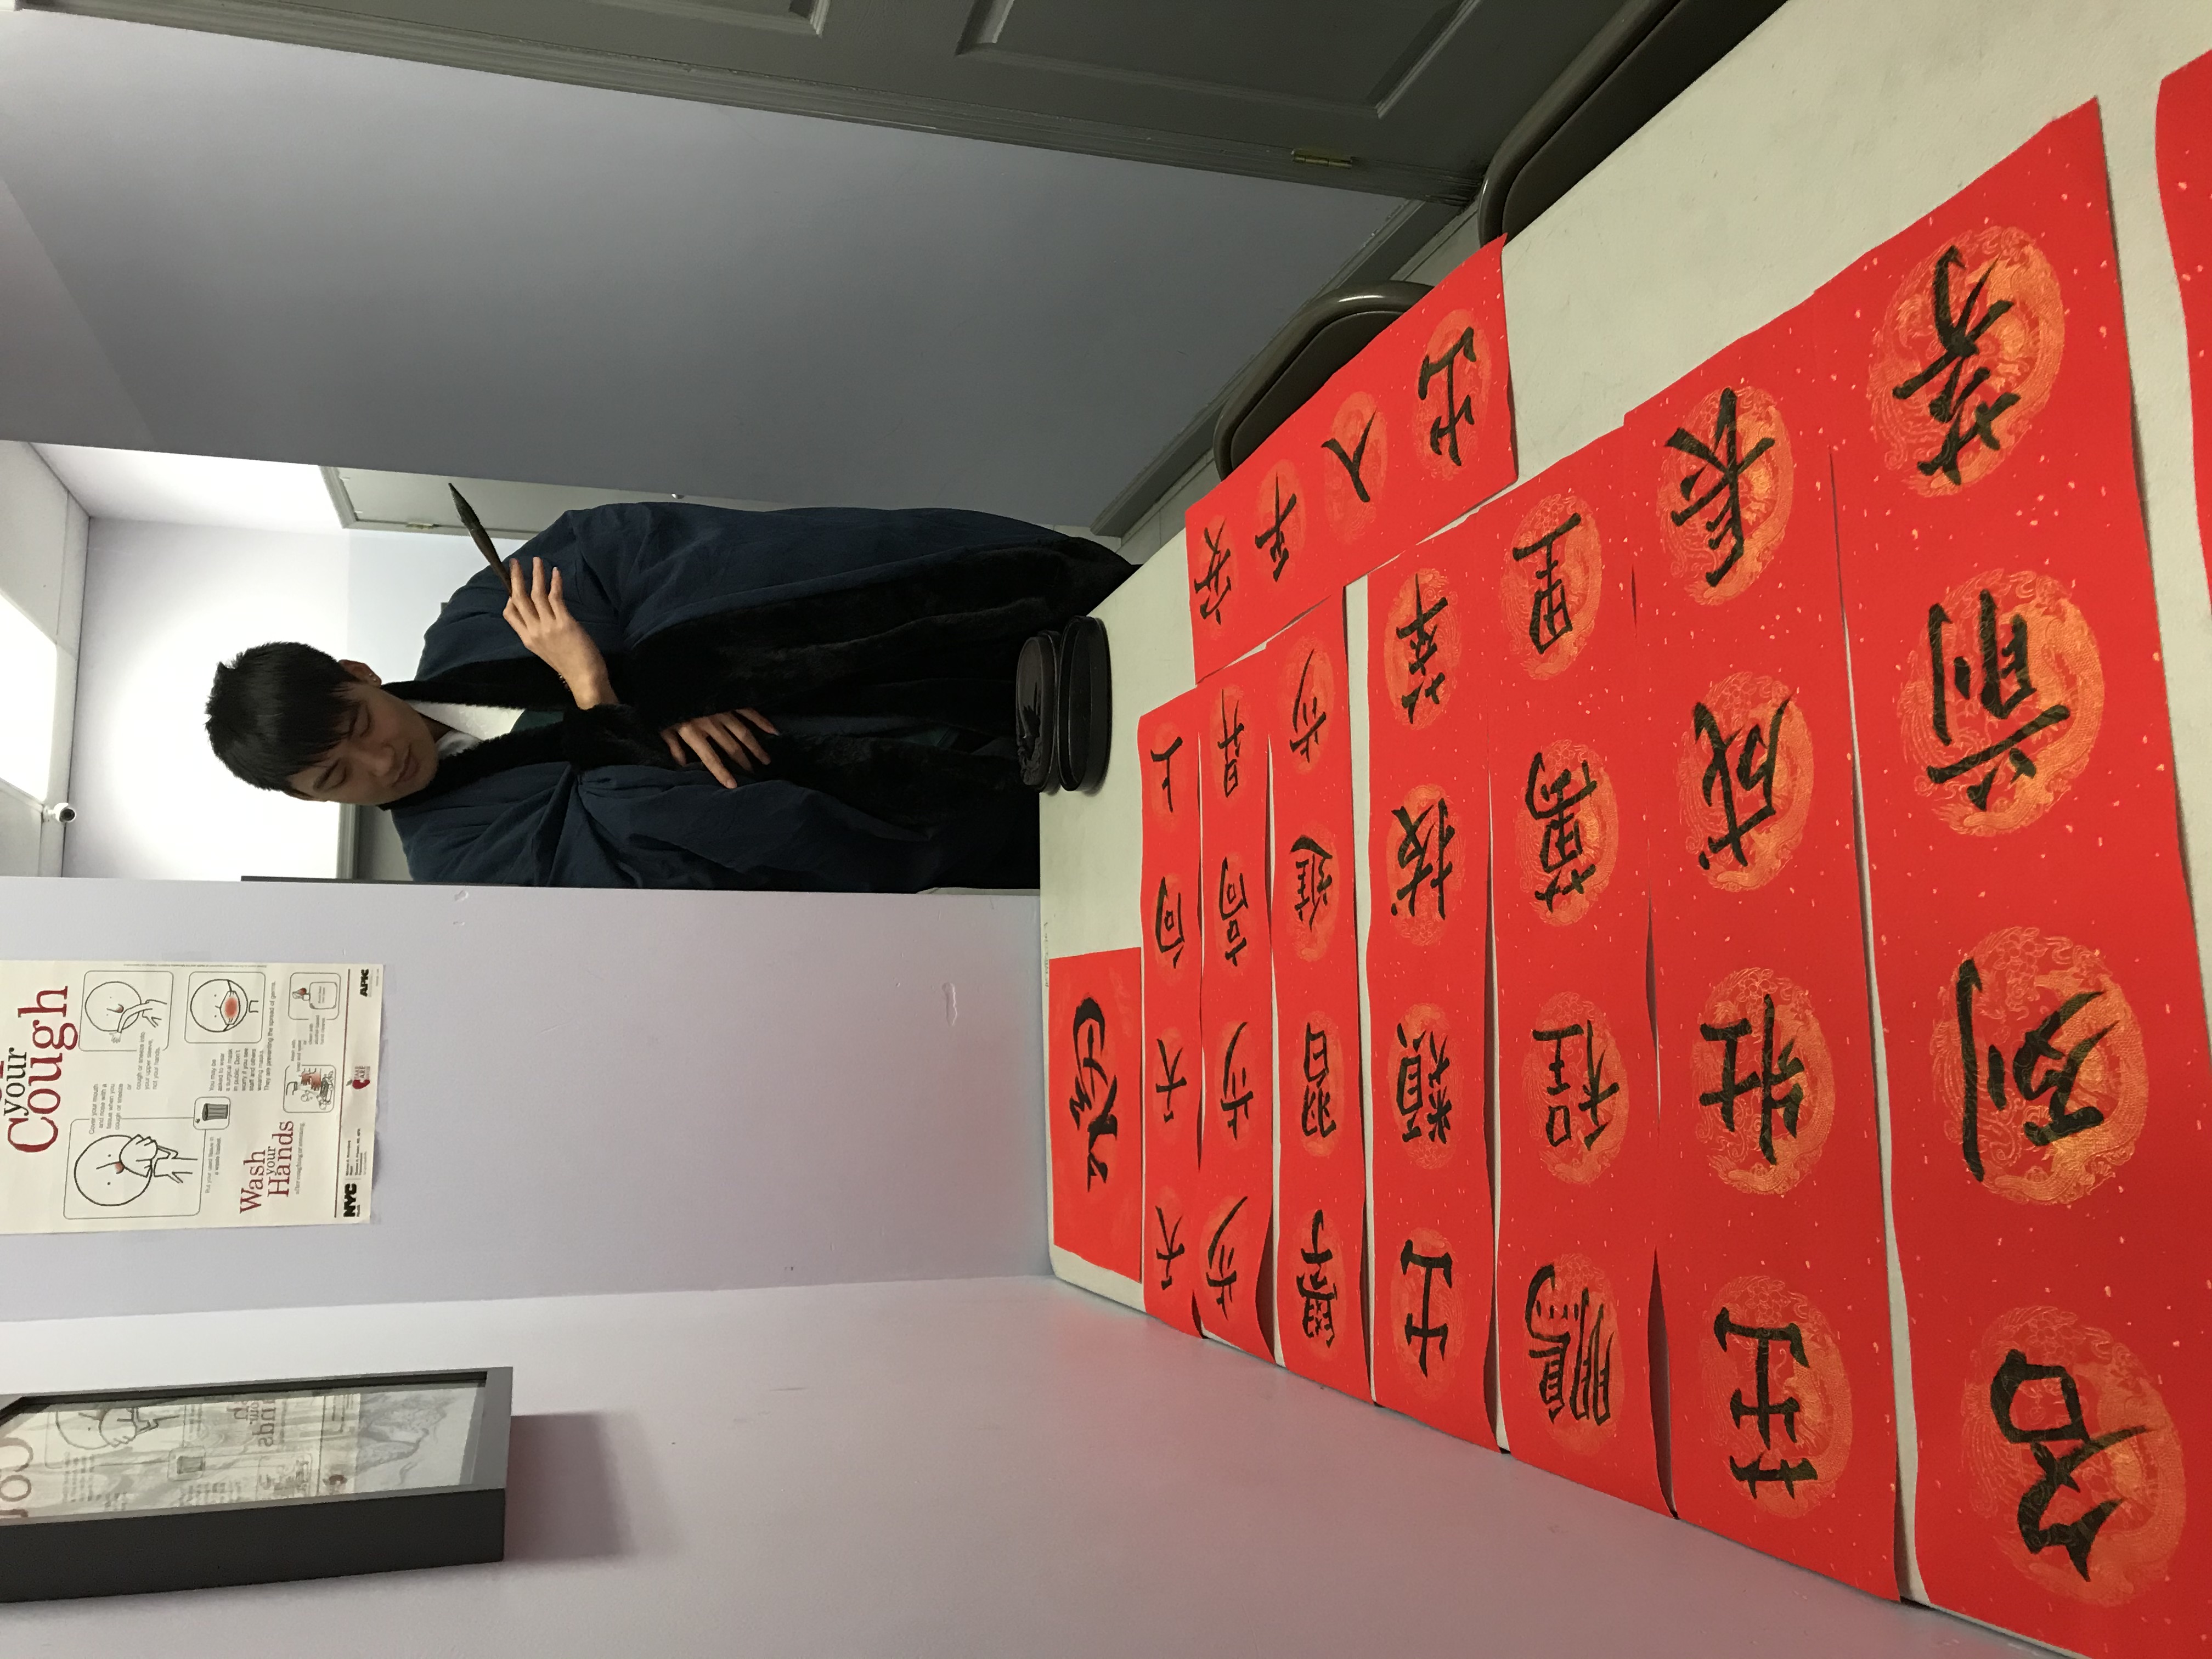 your
Cough
Cover your mouth
and nose with a
tissue when you
cough or sneeze
or
cough or sneeze into
your upper sleeve,
not your hands.
Put your used tissue in
a waste basket.
You may be
asked to wear
a surgical mask
in public. Don't
worry if you see
staff and others
wearing masks.
They are preventing the spread of germs.
Wash
your
Hands
after coughing or sneezing.
NYC
Health
APIC
福
天天向上
步步高昇
學習進步
出類拔萃
鵬程萬里
茁壯成長
名列前茅
出入平安